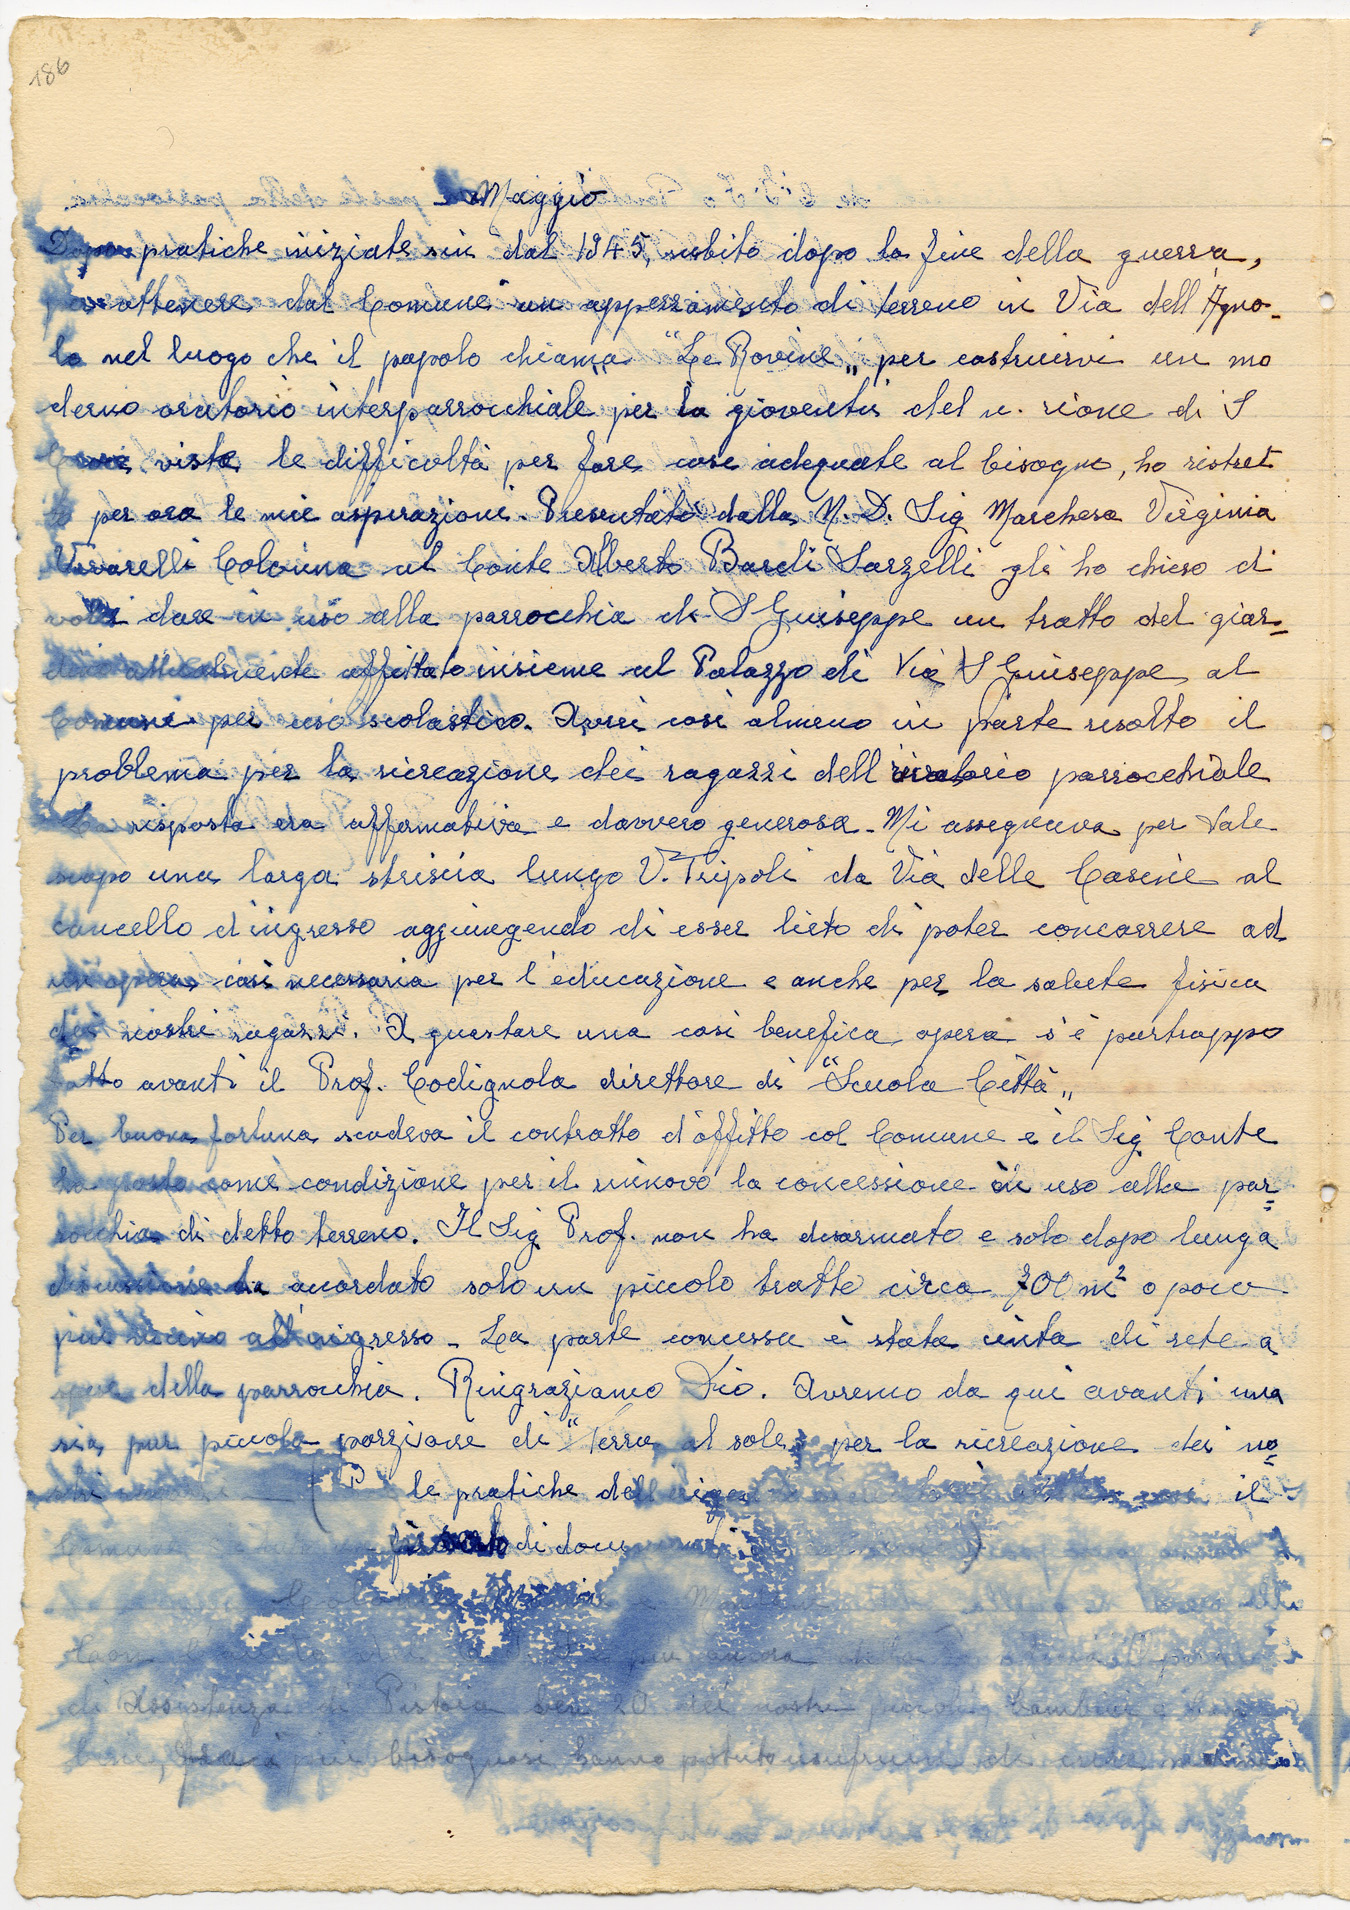 186
Maggio
Dopo pratiche iniziate sin dal 1945, subito dopo la fine della guerra,
per ottenere dal Comune un appezzamento di terreno in Via dell'Agno-
lo nel luogo che il popolo chiama "Le Rovine" per costruirvi un mo
derno oratorio interparrocchiale per la gioventù del n. rione di S
Croce, viste le difficoltà per fare cose adeguate al bisogno, ho ristret
to per ora le mie aspirazioni. Presentato dalla N. D. Sig Marchesa Virginia
Vivarelli Colonna al Conte Alberto Bardi Sarzelli gli ho chieso di
voler dare in uso alla parrocchia di S Giuseppe un tratto del giar=
dino attualmente affittato insieme al Palazzo di Via S Giuseppe al
Comune per uso scolastico. Avrei così almeno in parte risolto il
problema per la ricreazione dei ragazzi dell'oratorio parrocchiale
La risposta era affermativa e davvero generosa. Mi assegnava per tale
scopo una larga striscia lungo V. Tripoli da Via delle Casine al
cancello d'ingresso aggiungendo di esser lieto di poter concorrere ad
un'opera così necessaria per l'educazione e anche per la salute fisica
dei nostri ragazzi. A guastare una così benefica opera s'è purtroppo
fatto avanti il Prof. Codignola direttore di "Scuola Città"
Per buona fortuna scadeva il contratto d'affitto col Comune e il Sig Conte
ha posto come condizione per il rinnovo la concessione in uso alla par=
rocchia di detto terreno. Il Sig Prof. non ha disarmato e solo dopo lunga
discussione ha accordato solo un piccolo tratto circa 700 m² o poco
più vicino all'ingresso. La parte concessa è stata cinta di rete a
spese della parrocchia. Ringraziamo Dio. Avremo da qui avanti una
sia pur piccola porzione di "Terra al sole" per la ricreazione dei no=
stri le pratiche dell' il
Comune di docu

più ancora
di Assistenza di Pistoia ben 20 dei nostri piccoli bambini e
più bisognosi hanno potuto usufruire di